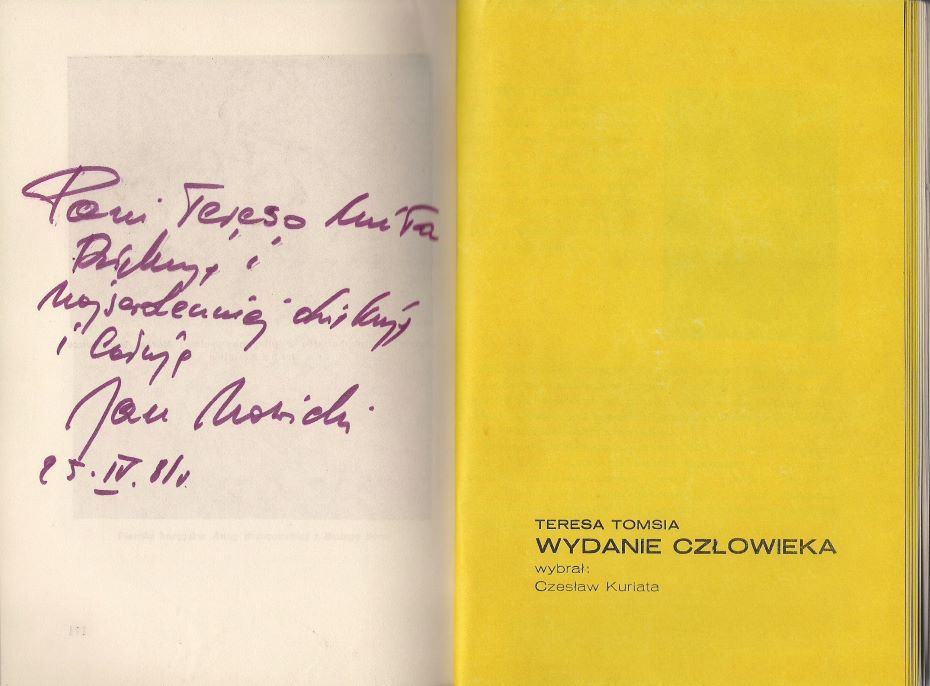 Pani Tereso miła
Dziękuję i
najserdeczniej dziękuję
i całuję
Jan Nowicki
25.IV.81r.
TERESA TOMSIA
WYDANIE CZŁOWIEKA
wybrał:
Czesław Kuriata